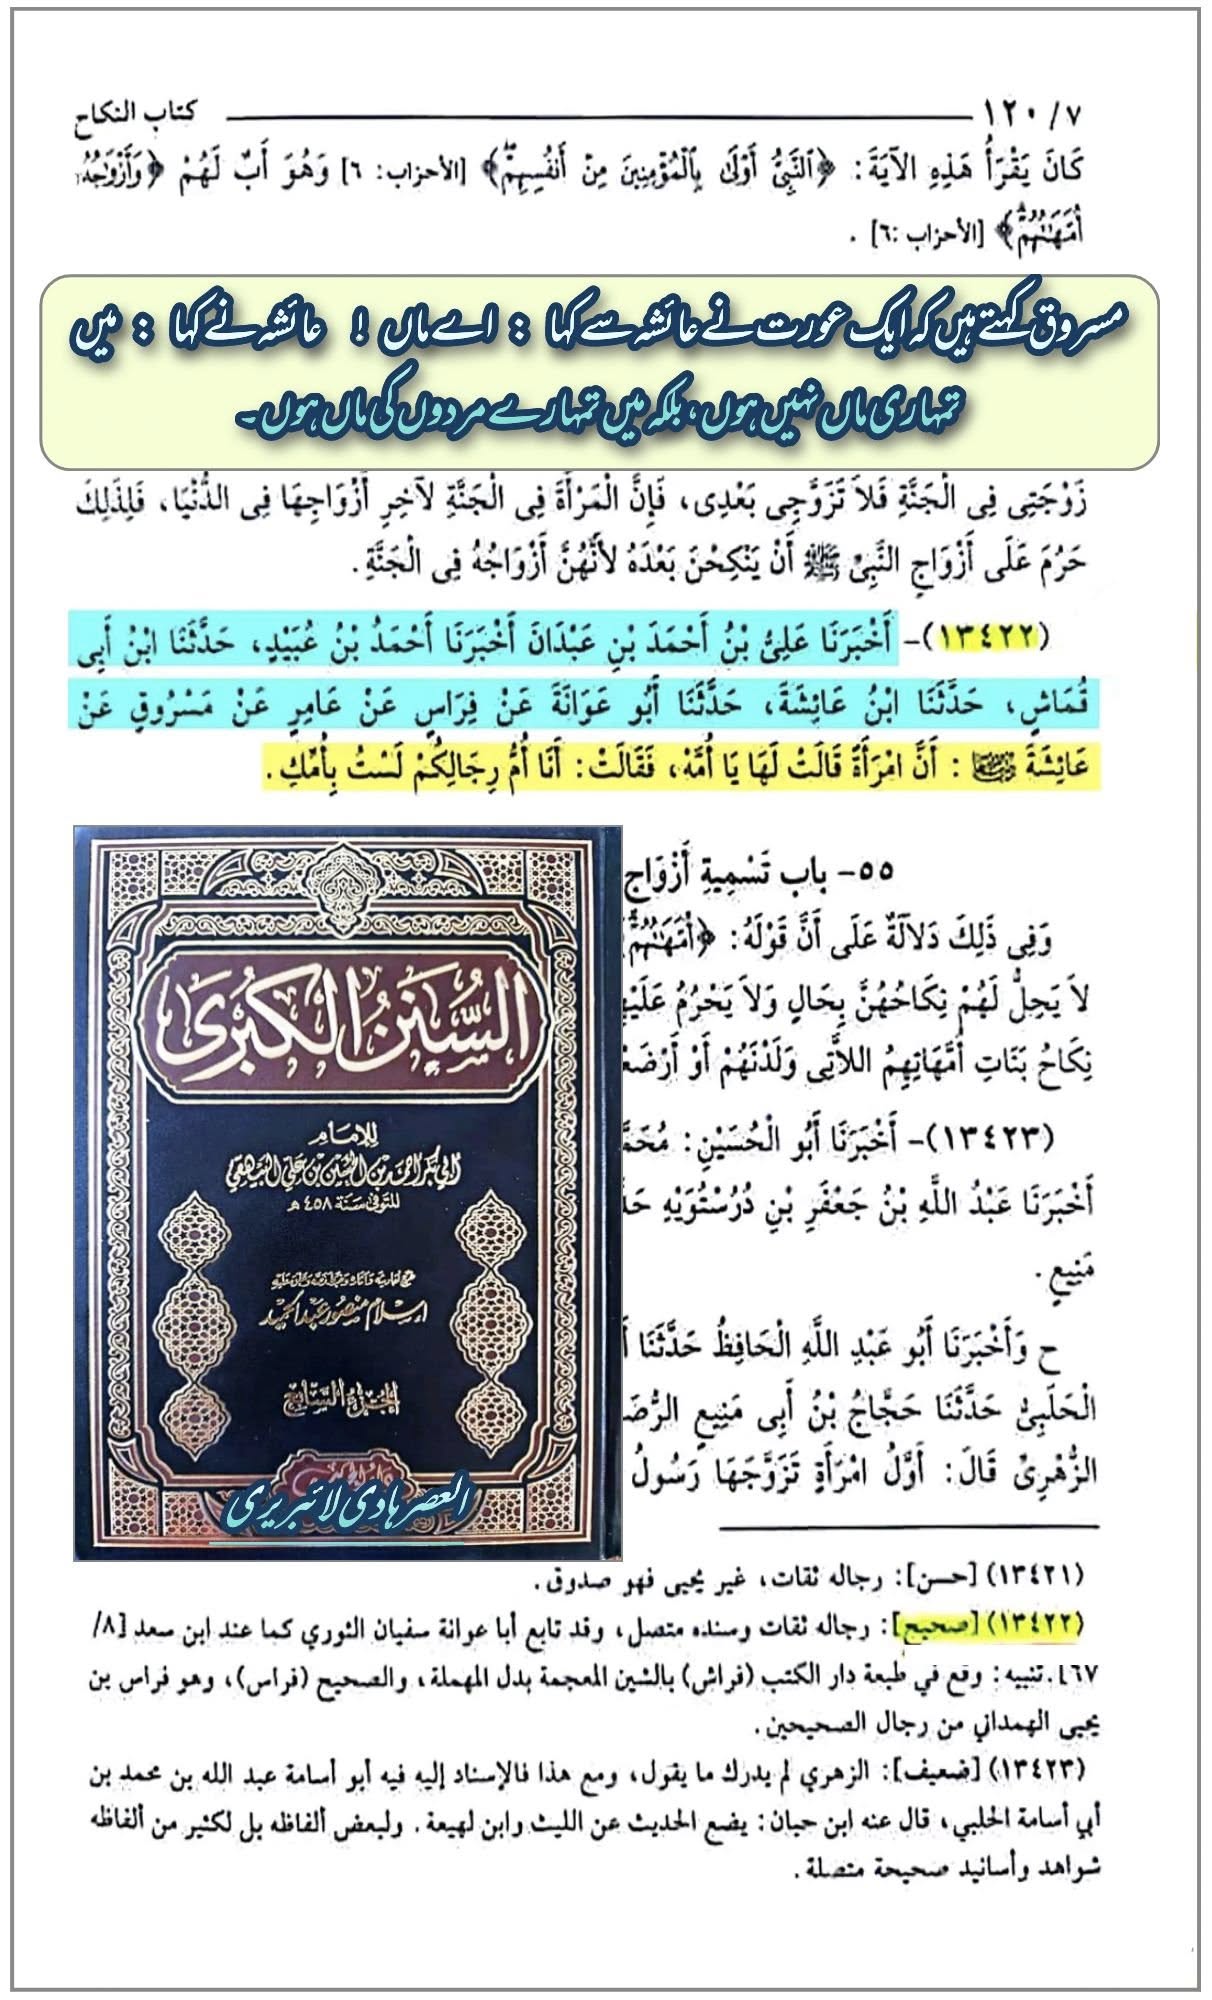 ١٢٠/٧ كتاب النكاح
كَانَ يَقْرَأُ هَذِهِ الآيَةَ: ﴿ٱلنَّبِيُّ أَوْلَىٰ بِٱلْمُؤْمِنِينَ مِنْ أَنفُسِهِمْ﴾ [الأحزاب: ٦] وَهُوَ أَبٌ لَهُمْ ﴿وَأَزْوَٰجُهُۥٓ
أُمَّهَـٰتُهُمْ﴾ [الأحزاب :٦] .
مسروق کہتے ہیں کہ ایک عورت نے عائشہ سے کہا : اے ماں ! عائشہ نے کہا : میں
تمہاری ماں نہیں ہوں، بلکہ میں تمہارے مردوں کی ماں ہوں۔
زَوْجَتِى فِى الْجَنَّةِ فَلاَ تَزَوَّجِى بَعْدِى، فَإِنَّ الْمَرْأَةَ فِى الْجَنَّةِ لآخِرِ أَزْوَاجِهَا فِى الدُّنْيَا، فَلِذَلِكَ
حَرُمَ عَلَى أَزْوَاجِ النَّبِىِّ ﷺ أَنْ يَنْكِحْنَ بَعْدَهُ لأَنَّهُنَّ أَزْوَاجُهُ فِى الْجَنَّةِ.
(١٣٤٢٢)- أَخْبَرَنَا عَلِىُّ بْنُ أَحْمَدَ بْنِ عَبْدَانَ أَخْبَرَنَا أَحْمَدُ بْنُ عُبَيْدٍ، حَدَّثَنَا ابْنُ أَبِى
قُمَاشٍ، حَدَّثَنَا ابْنُ عَائِشَةَ، حَدَّثَنَا أَبُو عَوَانَةَ عَنْ فِرَاسٍ عَنْ عَامِرٍ عَنْ مَسْرُوقٍ عَنْ
عَائِشَةَ رضي الله عنها : أَنَّ امْرَأَةً قَالَتْ لَهَا يَا أُمَّهْ، فَقَالَتْ: أَنَا أُمُّ رِجَالِكُمْ لَسْتُ بِأُمِّكِ.
٥٥- باب تَسْمِيَةِ أَزْوَاجِ
وَفِى ذَلِكَ دَلاَلَةٌ عَلَى أَنَّ قَوْلَهُ: ﴿أُمَّهَـٰتُهُمْ﴾
لاَ يَحِلُّ لَهُمْ نِكَاحُهُنَّ بِحَالٍ وَلاَ يَحْرُمُ عَلَيْهِ
نِكَاحُ بَنَاتِ أُمَّهَاتِهِمُ اللاَّتِى وَلَدْنَهُمْ أَوْ أَرْضَعْ
(١٣٤٢٣)- أَخْبَرَنَا أَبُو الْحُسَيْنِ: مُحَمَّ
أَخْبَرَنَا عَبْدُ اللَّهِ بْنُ جَعْفَرِ بْنِ دُرُسْتُوَيْهِ حَدَّ
مَنِيعٍ.
ح وَأَخْبَرَنَا أَبُو عَبْدِ اللَّهِ الْحَافِظُ حَدَّثَنَا أَ
الْحَلَبِىُّ حَدَّثَنَا حَجَّاجُ بْنُ أَبِى مَنِيعٍ الرُّصَ
الزُّهْرِىِّ قَالَ: أَوَّلُ امْرَأَةٍ تَزَوَّجَهَا رَسُولُ
السُّنَنُ الكُبْرَى
للإمَام
أبي بكر أحمد بن الحسين بن علي البيهقي
المتوفى سَنة ٤٥٨ هـ
إسلام منصور عبد الحميد
الجزء السَّابع
العصر ہادی لائبریری
(١٣٤٢١) [حسن]: رجاله ثقات، غير يحيى فهو صدوق.
(١٣٤٢٢) [صحيح]: رجاله ثقات وسنده متصل، وقد تابع أبا عوانة سفيان الثوري كما عند ابن سعد [٨/
٤٦٧.تنبيه: وقع في طبعة دار الكتب (فراش) بالشين المعجمة بدل المهملة، والصحيح (فراس)، وهو فراس بن
يحيى الهمداني من رجال الصحيحين.
(١٣٤٢٣) [ضعيف]: الزهري لم يدرك ما يقول، ومع هذا فالإسناد إليه فيه أبو أسامة عبد الله بن محمد بن
أبي أسامة الحلبي، قال عنه ابن حبان: يضع الحديث عن الليث وابن لهيعة. ولبعض ألفاظه بل لكثير من ألفاظه
شواهد وأسانيد صحيحة متصلة.